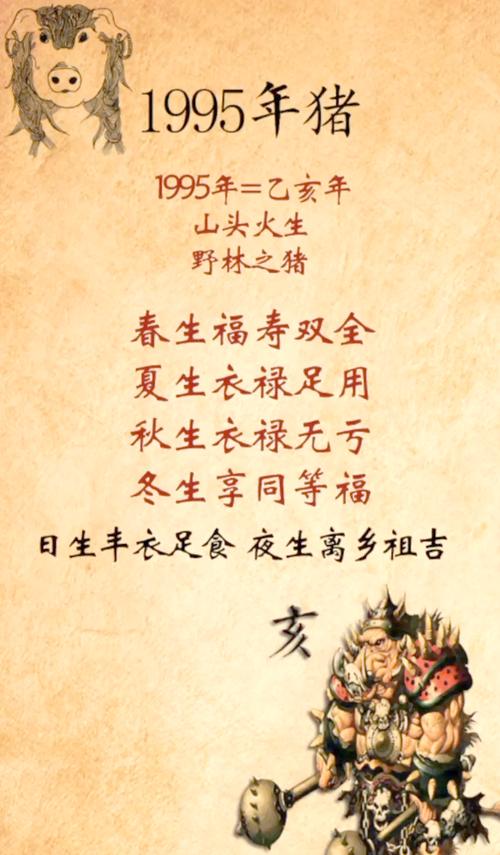 1995年猪
1995年=乙亥年
山头火生
野林之猪
春生福寿双全
夏生衣禄足用
秋生衣禄无亏
冬生享同等福
日生丰衣足食 夜生离乡祖吉
亥